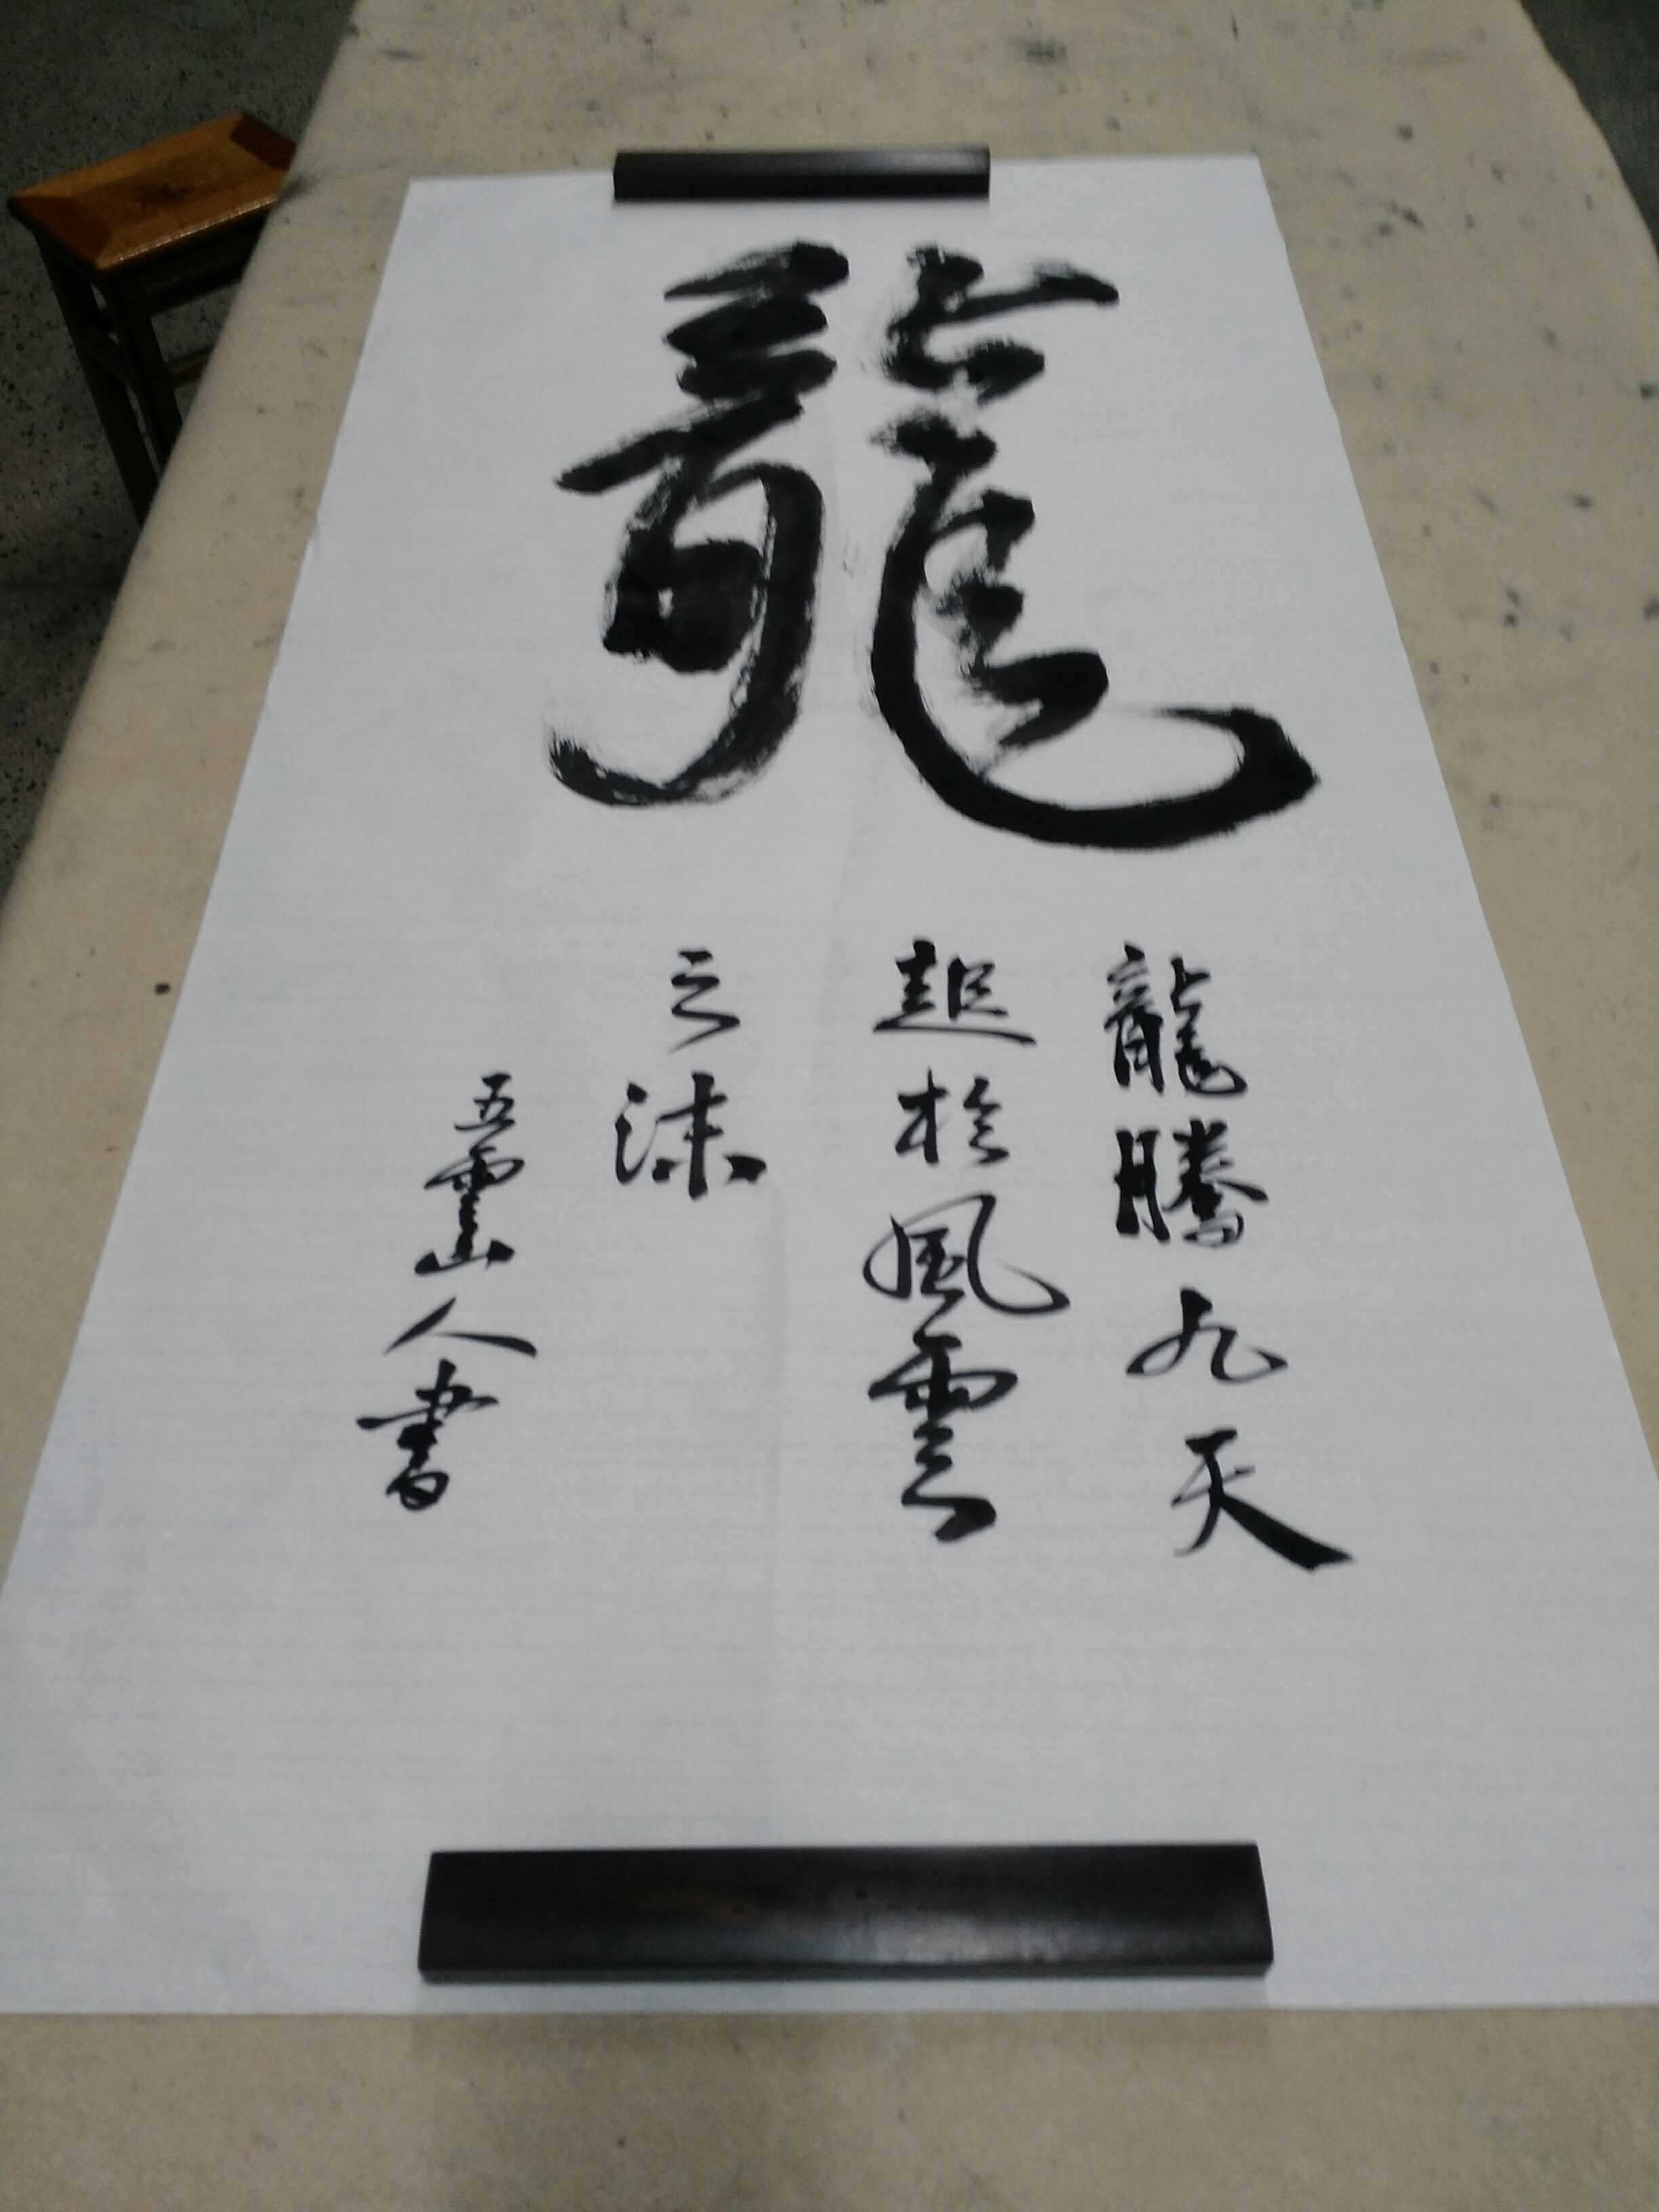 龍
龍騰九天
起於風雲
之沫
五雲山人書